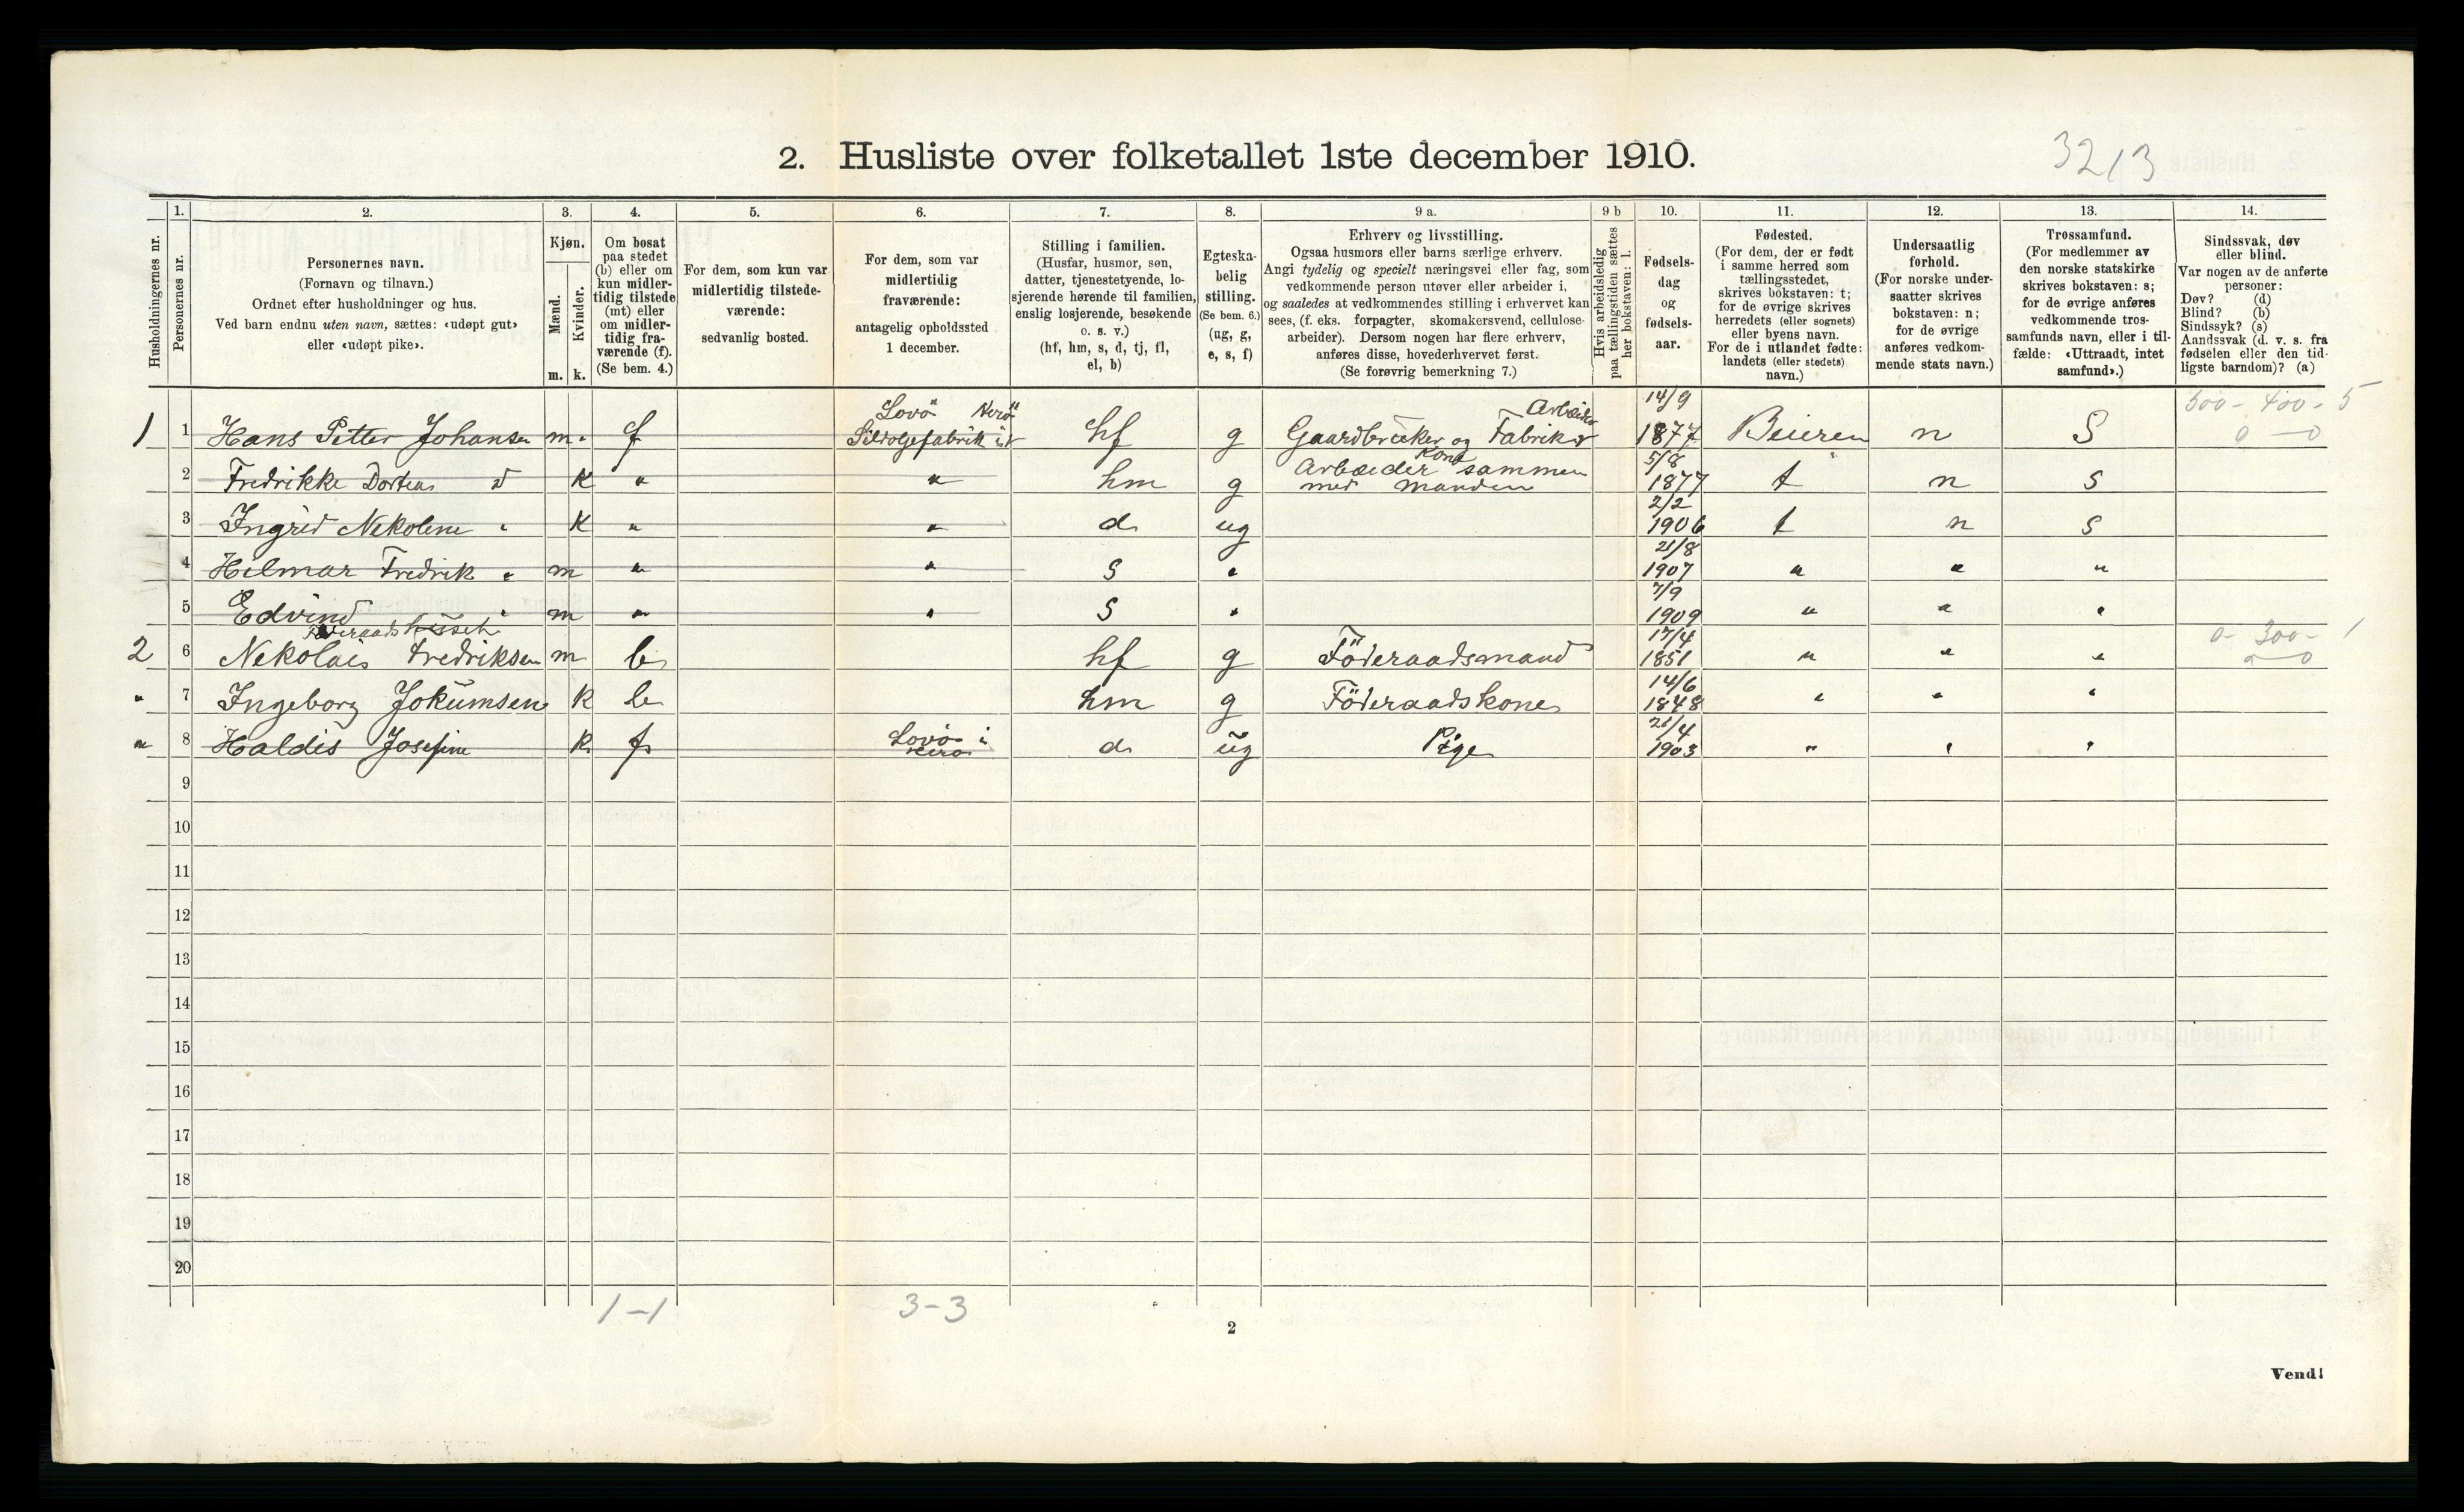 2. Husliste over folketallet 1ste december 1910.
3213
Husholdningernes nr.
1.
Personernes nr.
2.
Personernes navn.
(Fornavn og tilnavn.)
Ordnet efter husholdninger og hus.
Ved barn endnu uten navn, sættes: «udøpt gut»
eller «udøpt pike».
3.
Kjøn.
Mænd.
Kvinder.
m. k.
4.
Om bosat
paa stedet
(b) eller om
kun midler-
tidig tilstede
(mt) eller
om midler-
tidig fra-
værende (f).
(Se bem. 4.)
5.
For dem, som kun var
midlertidig tilstede-
værende:
sedvanlig bosted.
6.
For dem, som var
midlertidig
fraværende:
antagelig opholdssted
1 december.
7.
Stilling i familien.
(Husfar, husmor, søn,
datter, tjenestetyende, lo-
sjerende hørende til familien,
enslig losjerende, besøkende
o. s. v.)
(hf, hm, s, d, tj, fl,
el, b)
8.
Egteska-
belig
stilling.
(Se bem. 6.)
(ug, g,
e, s, f)
9 a.
Erhverv og livsstilling.
Ogsaa husmors eller barns særlige erhverv.
Angi tydelig og specielt næringsvei eller fag, som
vedkommende person utøver eller arbeider i,
og saaledes at vedkommendes stilling i erhvervet kan
sees, (f. eks. forpagter, skomakersvend, cellulose-
arbeider). Dersom nogen har flere erhverv,
anføres disse, hovederhvervet først.
(Se forøvrig bemerkning 7.)
9 b
Hvis arbeidsledig
paa tællingstiden sættes
her bokstaven: l.
10.
Fødsels-
dag
og
fødsels-
aar.
11.
Fødested.
(For dem, der er født
i samme herred som
tællingsstedet,
skrives bokstaven: t;
for de øvrige skrives
herredets (eller sognets)
eller byens navn.
For de i utlandet fødte:
landets (eller stedets)
navn.)
12.
Undersaatlig
forhold.
(For norske under-
saatter skrives
bokstaven: n;
for de øvrige
anføres vedkom-
mende stats navn.)
13.
Trossamfund.
(For medlemmer av
den norske statskirke
skrives bokstaven: s;
for de øvrige anføres
vedkommende tros-
samfunds navn, eller i til-
fælde: «Uttraadt, intet
samfund».)
14.
Sindssvak, døv
eller blind.
Var nogen av de anførte
personer:
Døv? (d)
Blind? (b)
Sindssyk? (s)
Aandssvak (d. v. s. fra
fødselen eller den tid-
ligste barndom)? (a)
Lovö Nerö Arbeider 14/9 500 - 400 - 5
1 1 Hans Petter Johansen m. f Sildoljefabrik hf g Gaardbruker og Fabrik 1877 Beieren n S 0 - 0
Kone 5/8
2 Fredrikke Dortea K " " hm g Arbeider sammen med manden 1877 t n s
2/2
3 Ingrid Nekoline " K " " d ug 1906 t n s
21/8
4 Hilmar Fredrik " m " " s " 1907 " " "
7/9
5 Edvind " m " " s " 1909 " " "
Föderaads 17/4 0 - 300 - 1
2 6 Nekolais Fredriksen m b hf g Föderaadsmand 1851 " " " 0 - 0
14/6
" 7 Ingeborg Jokumsen k b hm g Föderaadskone 1848 " " "
21/4
" 8 Haldis Josefine k f Lovö i Nerö d ug Pige 1903 " " "
9
10
11
12
13
14
15
16
17
18
19
20
1 - 1 3 - 3
2
Vend!